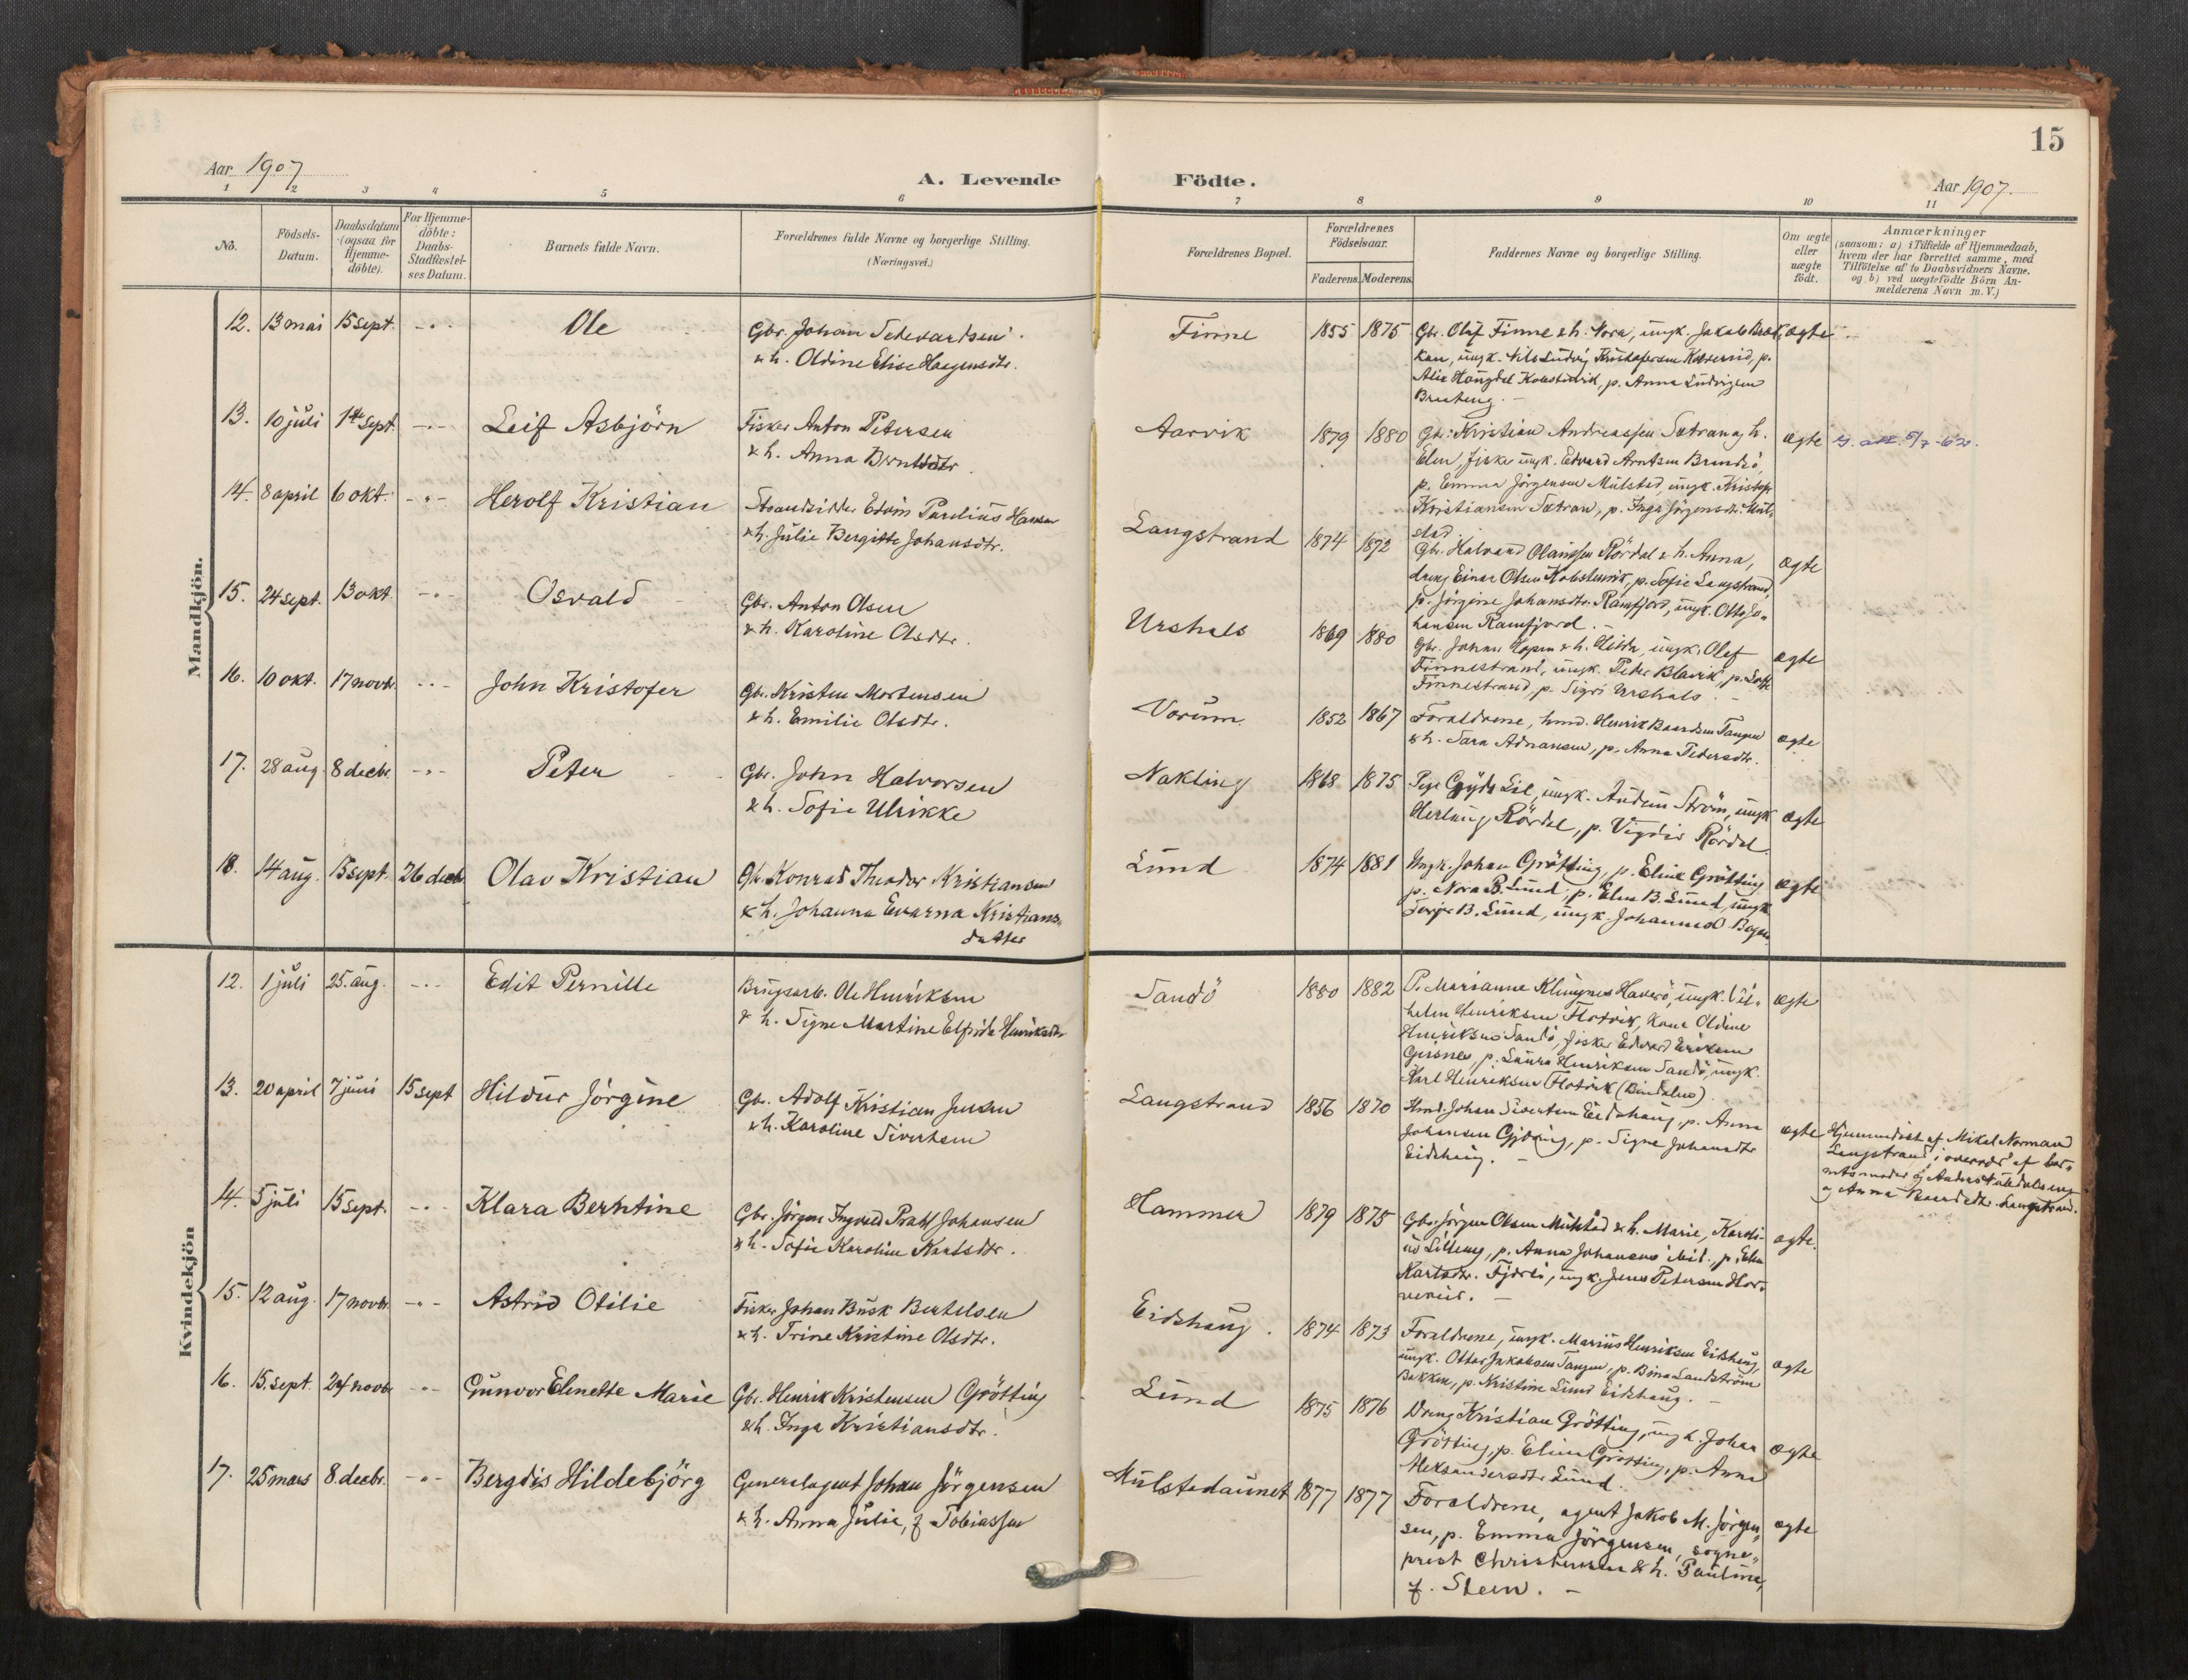 15
Aar 1907
A. Levende Födte.
Aar 1907.
1 2 3 4 5 6 7 8 9 10 11
No.
Födsels-
Datum.
Daabsdatum
(ogsaa for
Hjemme-
döbte).
For Hjemme-
döbte:
Daabs-
Stadfæstel-
ses Datum.
Barnets fulde Navn.
Forældrenes fulde Navne og borgerlige Stilling.
(Næringsvei.)
Forældrenes Bopæl.
Forældrenes
Födselsaar.
Faderens. Moderens.
Faddernes Navne og borgerlige Stilling.
Om ægte
eller
uægte
födt.
Anmærkninger
(saasom: a) i Tilfælde af Hjemmedaab,
hvem der har forrettet samme, med
Tilföielse af to Daabsvidners Navne.
og b) ved uægtefödte Börn An-
melderens Navn m.V.)
Mandkjön.
12. 13 mai 15 sept. -"- Ole
Gbr. Johan
& h. Oldine Elise Haagensdtr.
Finne 1855 1875
Gbr. Olaf Finne & h. Nora, ungk. Jakob
kan, ungk. Nils Ludvig Kristofersen p.
Alie p. Anna Ludvigsen
ægte
13. 10 juli 1ste sept. -"- Leif Asbjörn
Fisker Anton Petersen
& h. Anna Berntsdtr.
Aarvik 1879 1880
Gbr. Kristian Andreassen Sætran og h.
Elen, fisker ungk. Edvard Arntsen
p. Emma Jörgensen Mulstad, ungk. Kristofer
Kristiansen Sætran, p. Inga Jörgensdtr. Mul-
stad.
ægte 5/7-62.
14. 8 april 6 okt. -"- Herolf Kristian
Strandsidder Edvin Paulius Hansen
& h. Julie Bergitte Johansdtr.
Langstrand 1874 1872
Gbr. Halvard Olaussen Rördal & h. Anna,
dreng Einar Olsen p. Sofie Langstrand,
p. Jörgine Johansdtr. Ramfjord, ungk. Otto Jo-
hansen Ramfjord.
ægte
15. 24 sept. 13 okt. -"- Osvald
Gbr. Anton Olsen
& h. Karoline Olsdtr.
Urshals 1869 1880
Gbr. Johan & h. ungk. Olaf
Finnestrand, ungk. Peder Blavik, p.
Finnestrand, p. Sigri Urshals.
ægte
16. 10 okt. 17 novbr. -"- John Kristofer
Gbr. Kristen Mortensen
& h. Emilie Olsdtr.
Vorum 1852 1867
Forældrene, hmd. Henrik Baardsen Tangen
& h. Sara Adriansen, p. Anna Pedersdtr.
ægte
17. 28 aug. 8 decbr. -"- Peter
Gbr. John Halvorsen
& h. Sofie Ulrikke
Nakling 1868 1875
Pige Gyda Lil, ungk. Audun Ström, ungk.
Herlaug Rördal, p. Vigdis Rördal.
ægte
18. 14 aug. 15 sept. 26 decb. Olav Kristian
Gbr. Konrad Theodor Kristiansen
& h. Johanna Evarna Kristians-
datter
Lund 1874 1881
Ungk. Johan Grötting, p. Eline Grötting
p. Nora B. Lund, p. Elen B. Lund, ungk.
Torger B. Lund, ungk. Johannes
ægte
Kvindekjön
12. 1 juli 25. aug. -"- Edit Pernille
Brugsarb. Ole Henriksen
& h. Signe Martine Elfrida Henriksdtr.
Sandö 1880 1882
P. Marianne ungk. Vil-
helm Henriksen Flotvik, kone Oldine
Henriksen Sandö, fisker Edvard Eriksen
Geisnes, p. Laura Henriksen Sandö, ungk.
Karl Henriksen Flotvik (Bindalen).
ægte
13. 20 april 7 juni 15 sept Hildur Jörgine
Gbr. Adolf Kristian Jensen
& h. Karoline Sivertsen
Langstrand 1856 1870
Hmd. Johan Sivertsen Eidshaug, p. Anna
Johansen p. Signe Johansdtr
Eidshaug.
ægte
Hjemmedöbt af Mikal Normann
Langstrand, i overvær af bar-
nets moder og Anders
og Anna Langstrand.
14. 5 juli 15 sept. -"- Klara Berntine
Gbr. Jörgen Ingvald Johansen
& h. Sofie Karoline Karlsdtr.
Hammer 1879 1875
Gbr. Jörgen Olsen Mulstad & h. Marie,
p. Anna Johansen p. Elen
Karlsdtr. ungk. Jens Petersen Hor-
ægte.
15. 12 aug. 17 novbr. -"- Astrid Otilie
Fisker Johan Busk Bertelsen
& h. Trine Kristine Olsdtr.
Eidshaug. 1874 1873
Forældrene, ungk. Marius Henriksen Eidshaug,
ungk. Ottar Jakobsen Tangen, p. Bina Sandström
Bakken, p. Kristine Lund Eidshaug.
ægte
16. 15. sept. 24 novbr. -"- Gunvor Elenette Marie
Gbr. Henrik Kristensen Grötting
& h. Inga Kristiansdtr.
Lund 1875 1876
Dreng Kristian Grötting, ungk. Johan
Grötting, p. Eline Grötting, p. Anna
Aleksandersdtr. Lund.
ægte
17. 25 mars 8. decbr. -"- Bergdis Hildebjörg
Generalagent Johan Jörgensen
& h. Anna Julie, f. Tobiassen
Mulstedaunet 1877 1877
Forældrene, agent Jakob M. Jörgen-
sen, p. Emma Jörgensen, sogne-
prest Christensen & h. Pauline,
f. Steen.
ægte